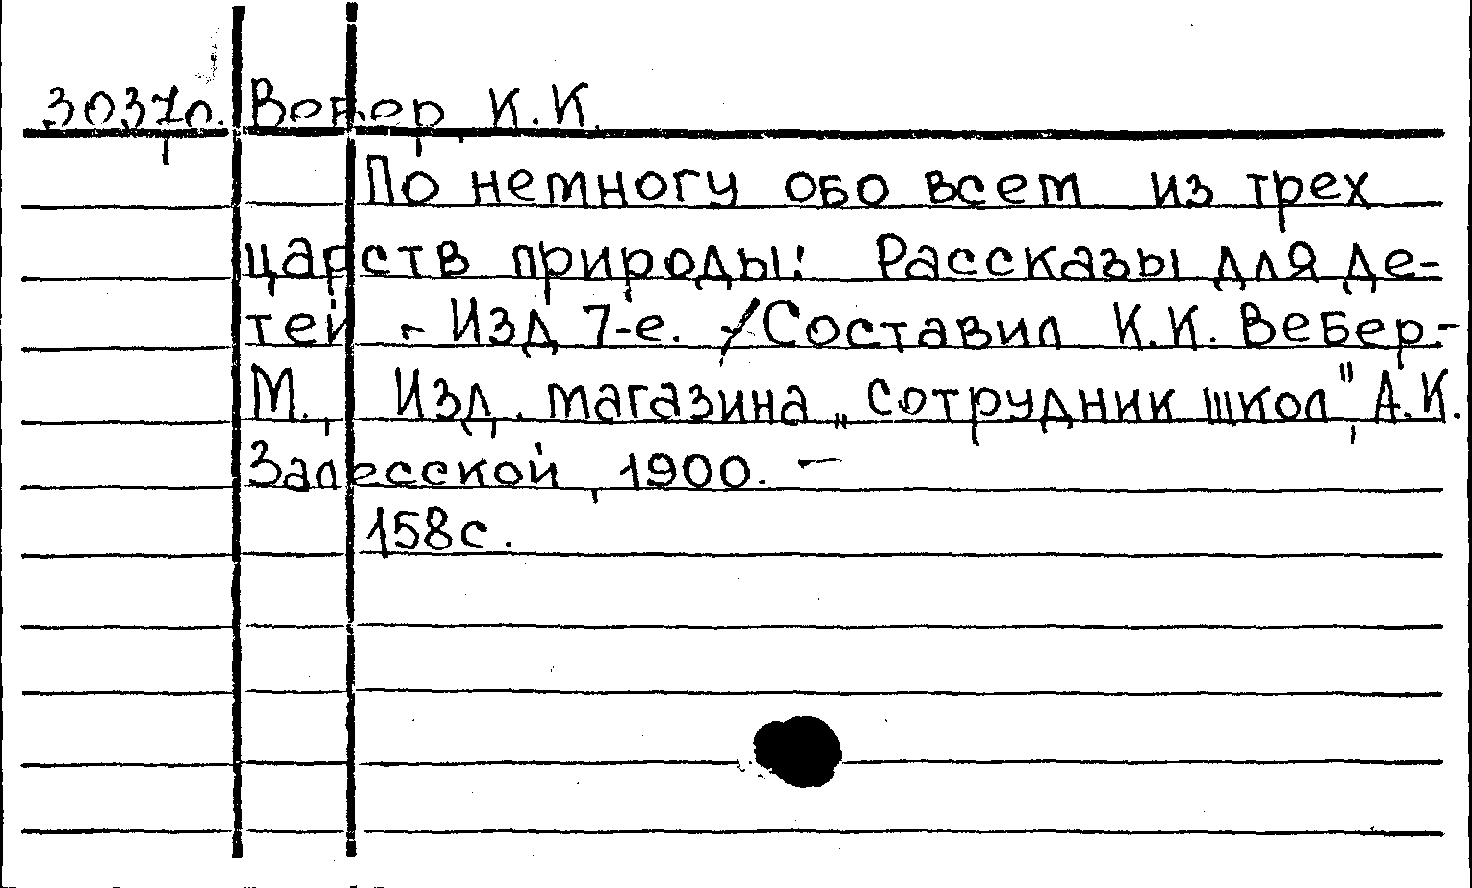 3037р. Вебер, К.К.
По немногу обо всем из трех
царств природы: Рассказы для де-
тей. - Изд 7-е. /Составил К.К. Вебер.-
М., Изд. магазина „Сотрудник школ", А.К.
Залесской, 1900. —
158с.